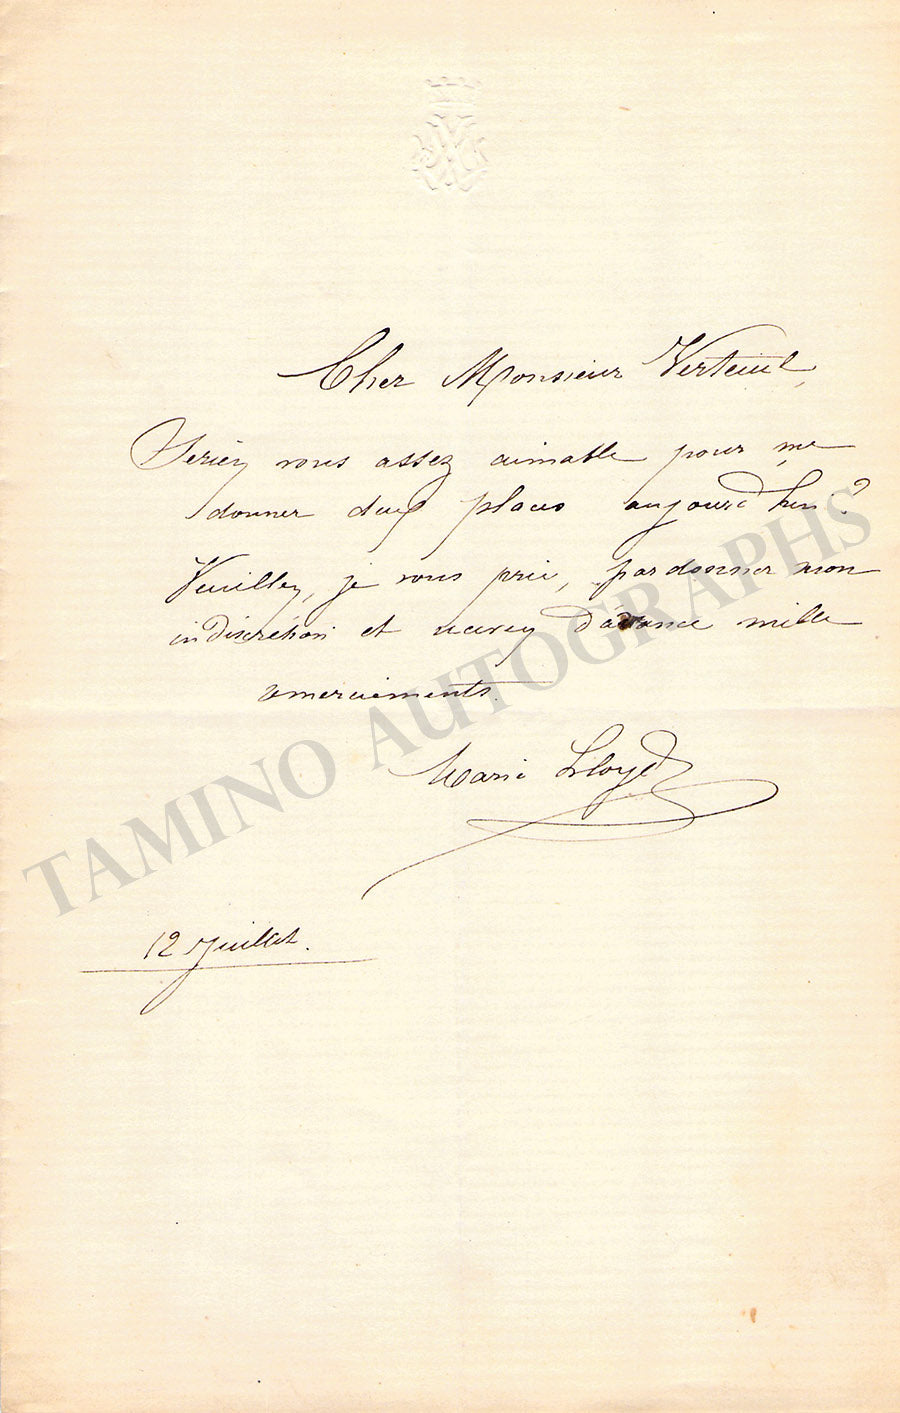 Cher Monsieur Verteuil,
Seriez vous assez aimable pour me
donner deux places aujourd'hui ?
Veuillez, je vous prie, pardonner mon
indiscrétion et recevez d'avance mille
remerciements.
Marie Lloyd
12 Juillet.
TAMINO AUTOGRAPHS